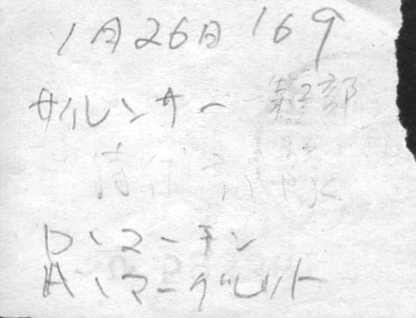 1月26日 '69
サイレンサー 第3部
D、マーチン
A、マーグレット